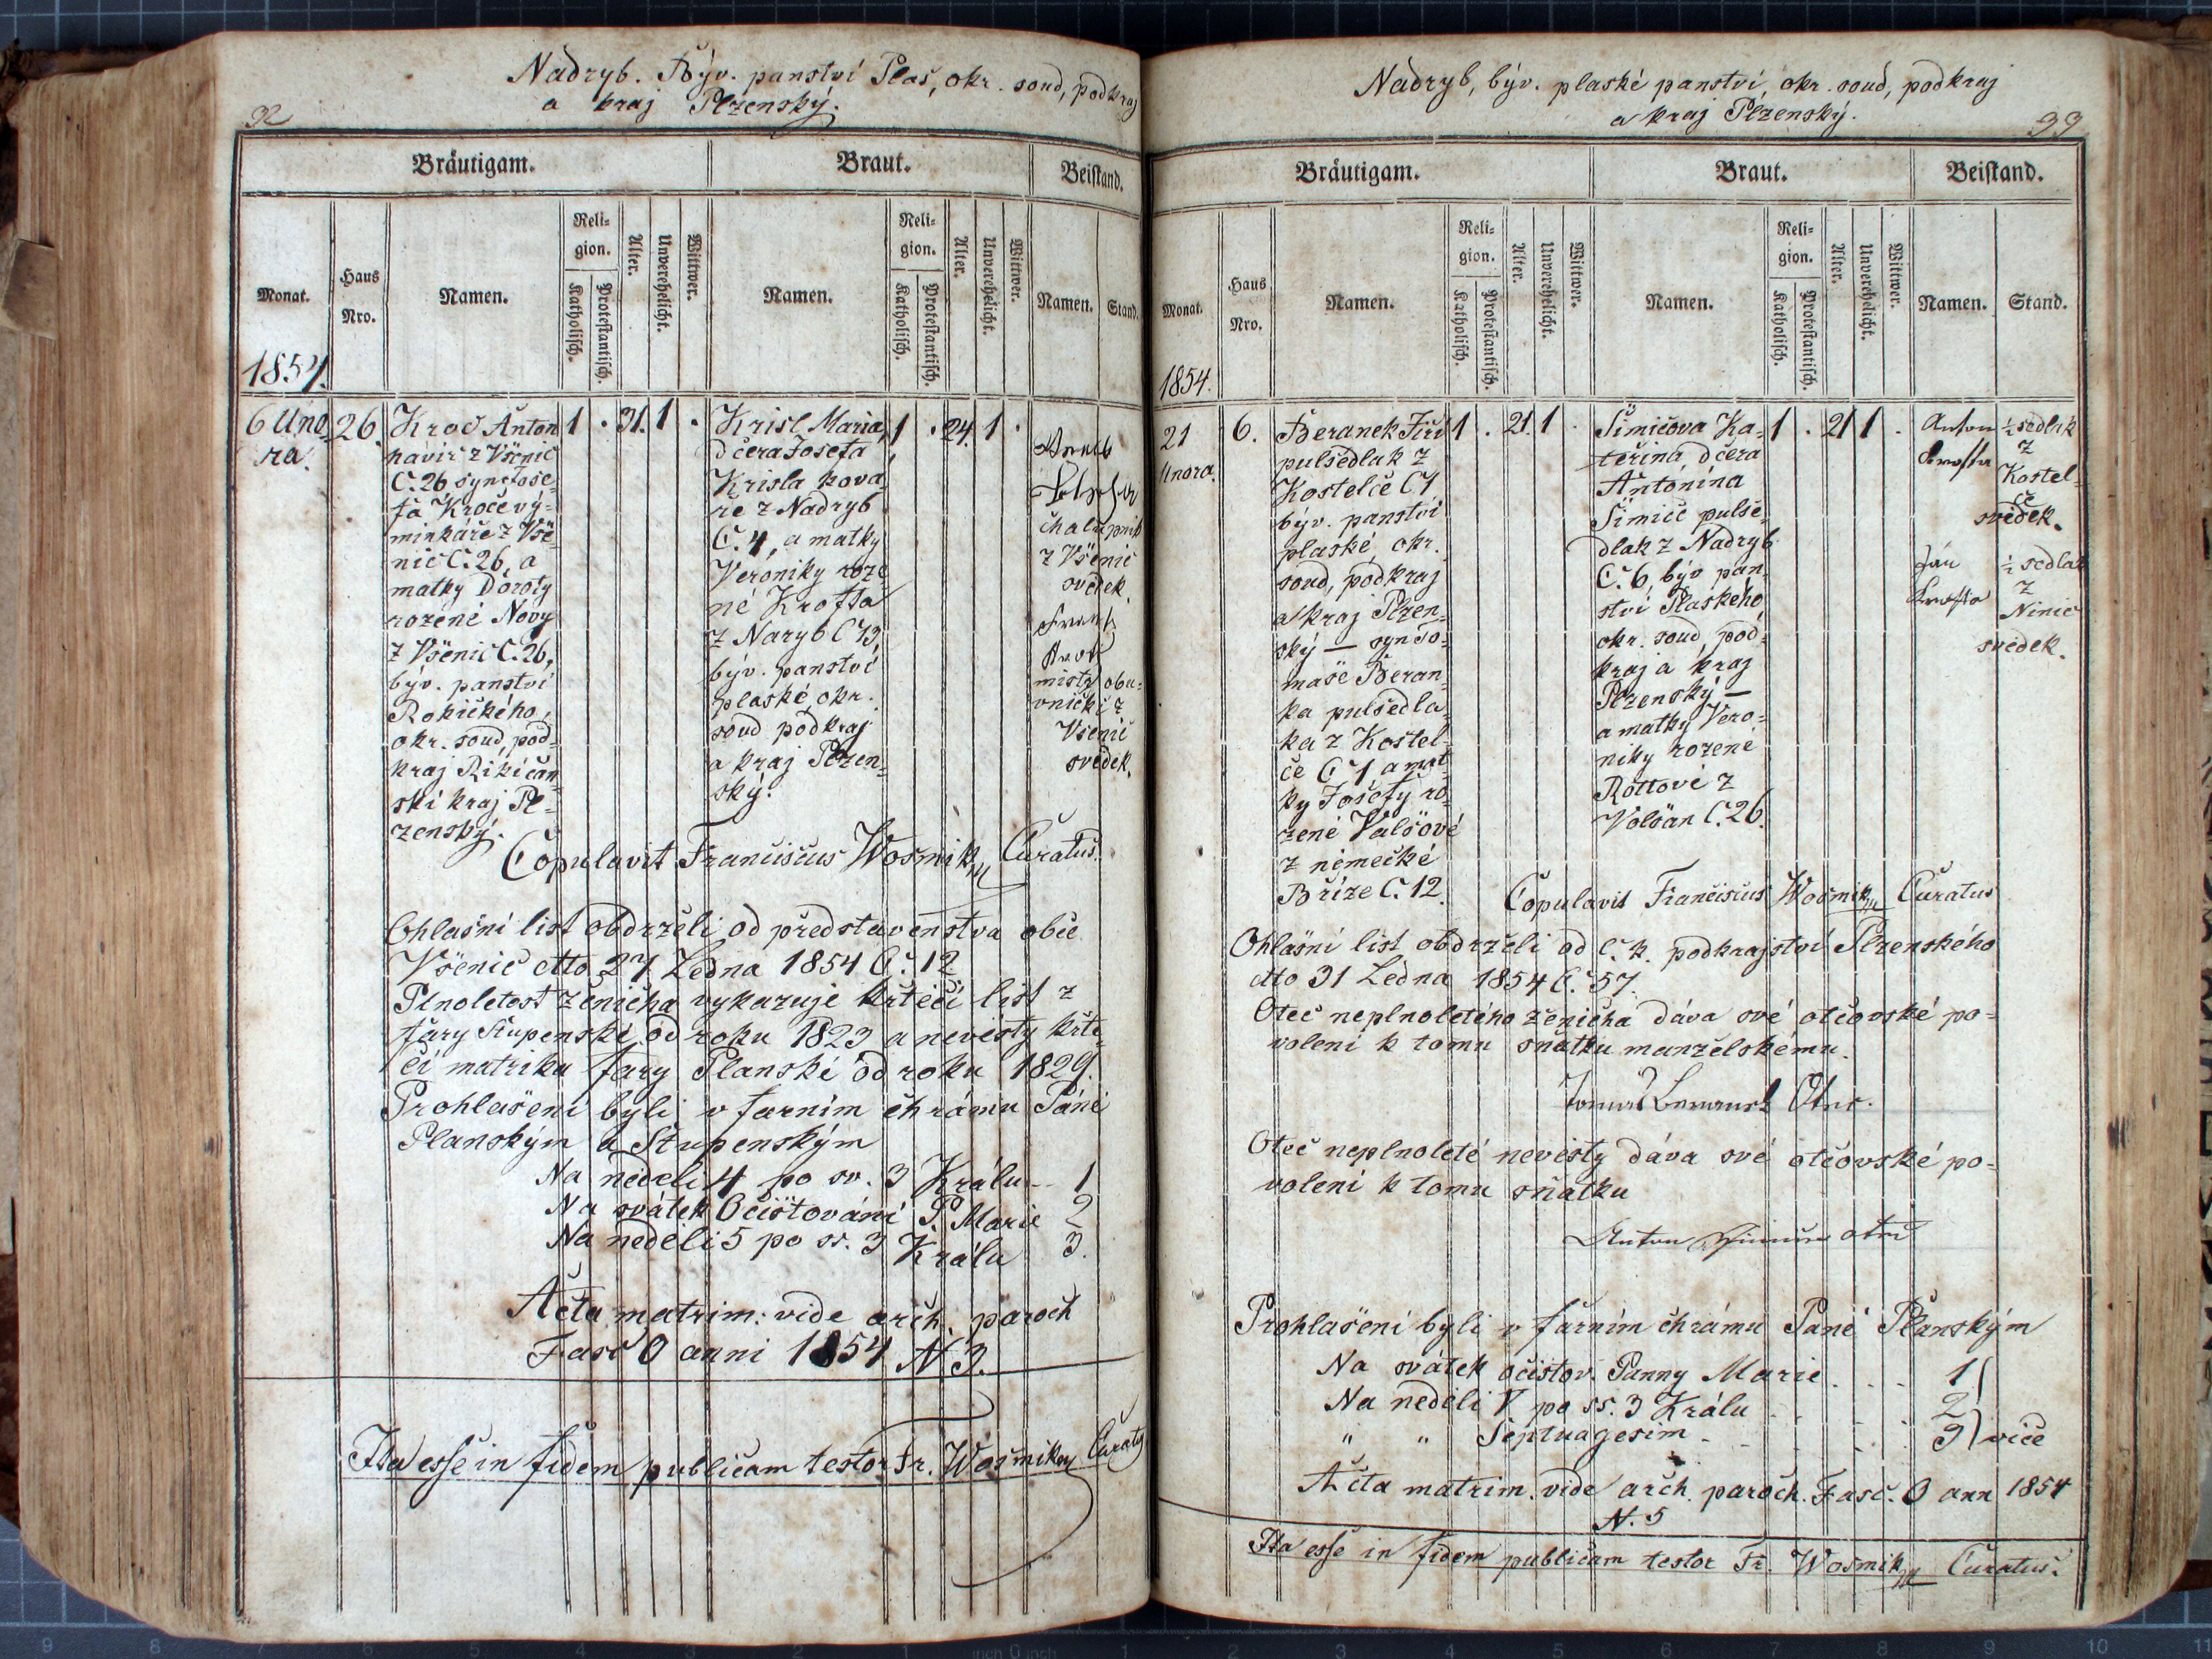 Nadryb. Býv. panství Plas, okr. soud, podkraj
a kraj Plzenský.
92
Bräutigam.
Braut.
Beistand.
Monat.
Haus Nro.
Namen.
Religion.
Katholisch.
Protestantisch.
Alter.
Unverehelicht.
Wittwer.
Namen.
Religion.
Katholisch.
Protestantisch.
Alter.
Unverehelicht.
Wittwer.
Namen.
Stand.
1854.
6 Úno
ra.
26.
Kroč Anton
havíř z Všenic
C. 26 syn Jose-
fa Kroče vý-
minkáře z Vše-
nic C. 26, a
matky Doroty
rozené Nový
z Všenic C. 26,
býv. panství
Rokičkého,
okr. soud, pod-
kraj Rikičan
ski kraj Pl-
zenský.
1 . 31. 1 .
Krisl Maria,
dčera Josefa
Krisla kova
ře z Nadryb
C. 4, a matky
Veroniky roze
né Krofta
z Naryb C 13
býv. panství
plaské, okr.
soud podkraj
a kraj Plzen-
ský.
1 . 24. 1 .
chalupnik
z Všenic
svědek.
Frant
mistr obu-
vnický z
Všenic
svědek.
Copulavit Franciscus Wosmik Curatus.
Ohlasní list obdrželi od představenstva obce
Všenic dto 27 Ledna 1854 C. 12
Plnoletost ženicha vykazuje křtěcí list z
fary Stupenské od roku 1823 a nevěsty křtě-
čí matrika fary Planské od roku 1829.
Prohlašeni byli v farním chrámu Páně
Planským a Stupenským
Na neděli 4 po sv. 3 Králu -- 1
Na svátek Očisťování P. Marie 2
Na neděli 5 po ss. 3 Králu 3.
Acta matrim: vide arch. paroch
Fasc O anni 1854 N 3.
Ita esse in fidem publicam testor Fr. Wosmik Curatus
Nadryb, býv. plaské panství, okr. soud, podkraj
a kraj Plzenský.
93
Bräutigam.
Braut.
Beistand.
Monat.
Haus Nro.
Namen.
Religion.
Katholisch.
Protestantisch.
Alter.
Unverehelicht.
Wittwer.
Namen.
Religion.
Katholisch.
Protestantisch.
Alter.
Unverehelicht.
Wittwer.
Namen.
Stand.
1854.
21
Unora.
6.
Beranek Jiří
pulsedlak z
Kostelce C 7
býv. panství
plaské, okr.
soud, podkraj
a kraj Plzen-
ský — syn To-
maše Beran-
ka pulsedla-
ka z Kostel-
če C 7 a mat-
ky Josefy ro-
zené Valšové
z německé
Bříze C. 12.
1 . 21. 1 .
Šimičova Ka-
teřina dčera
Antonína
Šimič pulse-
dlak z Nadryb
C. 6, býv pan-
ství Plaského
okr. soud, pod-
kraj a kraj
Plzenský —
a matky Vero-
niky rozené
Rottové z
Volšan C. 26.
1 . 21 1 .
Anton
Krofta
½ sedlak
z
Kostel-
če
svědek.
Ján
Krofta
½ sedlak
z
Ninic
svědek.
Copulavit Franciscus Wosmik Curatus
Ohlasní list obdrželi od C. k. podkrajství Plzenského
dto 31 Ledna 1854 C. 57.
Otec neplnoletého ženicha dáva své otcovské po-
volení k tomu sňatku manželskému.
Tomaš Beranek Otec.
Otec neplnoleté nevěsty dáva své otcovské po-
volení k tomu sňatku
Anton Šimice otec
Prohlašeni byli v farním chrámu Páně Planským
Na svátek očistov. Panny Marie . . . 1
Na neděli V po ss. 3 Králu . . . . 2
" " Septuagesim - . . . . 3 vice
Acta matrim. vide arch. paroch. Fasc. O ann 1854
N. 5
Ita esse in fidem publicam testor Fr. Wosmik Curatus.